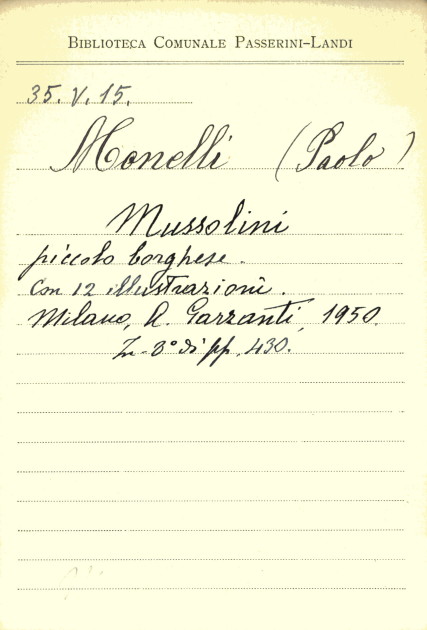 BIBLIOTECA COMUNALE PASSERINI-LANDI
35. V. 15.
Monelli (Paolo)
Mussolini
piccolo borghese.
Con 12 illustrazioni.
Milano, A. Garzanti, 1950.
In-8° di pp. 430.